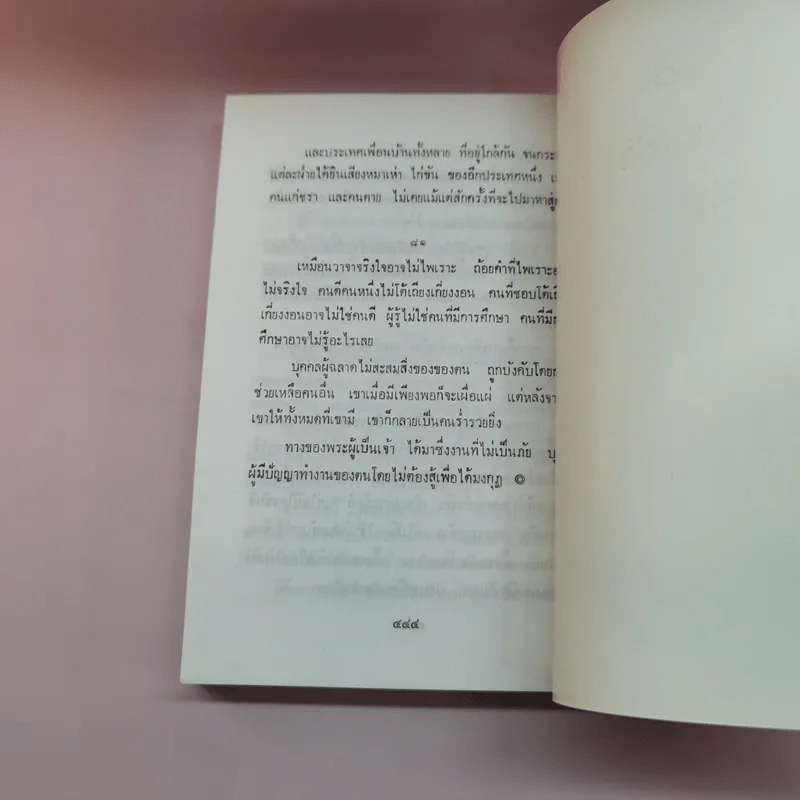 และประเทศเพื่อนบ้านทั้งหลาย ที่อยู่ใกล้กัน จนกระ
แต่ละฝ่ายได้ยินเสียงหมาเห่า ไก่ขัน ของอีกประเทศหนึ่ง
คนแก่ชรา และคนตาย ไม่เคยแม้แต่สักครั้งที่จะไปมาหาสู่
๘๑
เหมือนวาจาจริงใจอาจไม่ไพเราะ ถ้อยคำที่ไพเราะอ
ไม่จริงใจ คนดีคนหนึ่งไม่โต้เถียงเกี่ยงงอน คนที่ชอบโต้เถี
เกี่ยงงอนอาจไม่ใช่คนดี ผู้รู้ไม่ใช่คนที่มีการศึกษา คนที่มี
ศึกษาอาจไม่รู้อะไรเลย
บุคคลผู้ฉลาดไม่สะสมสิ่งของของตน ถูกบังคับโดย
ช่วยเหลือคนอื่น เขาเมื่อมีเพียงพอก็จะเผื่อแผ่ แต่หลังจา
เขาให้ทั้งหมดที่เขามี เขาก็กลายเป็นคนร่ำรวยยิ่ง
ทางของพระผู้เป็นเจ้า ได้มาซึ่งงานที่ไม่เป็นภัย บุ
ผู้มีปัญญาทำงานของตนโดยไม่ต้องสู้เพื่อได้มงกุฎ ๏
๔๔๔